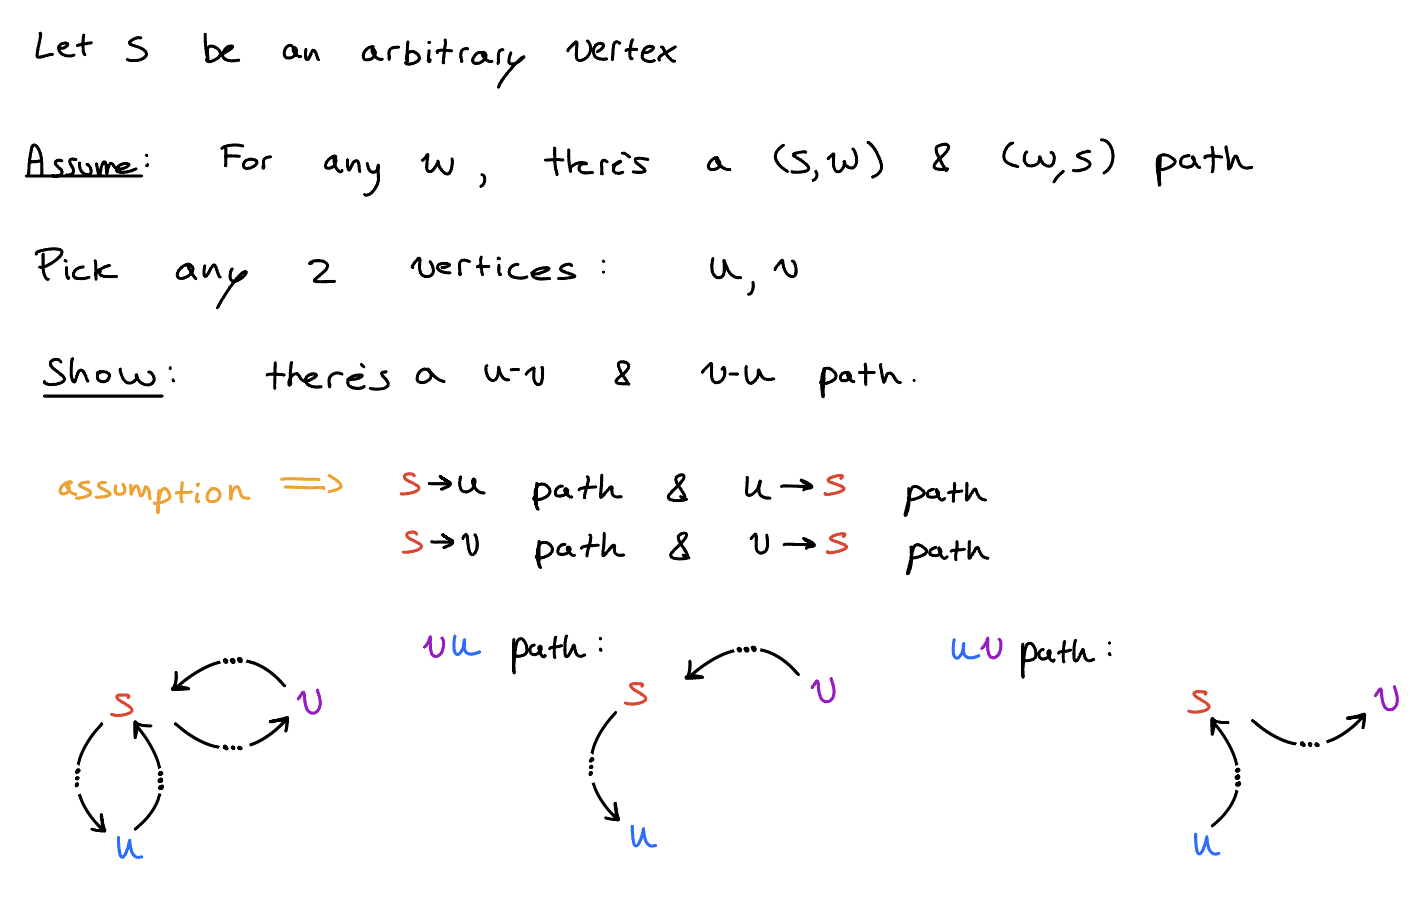 Let s be an arbitrary vertex
Assume: For any w, there's a (s,w) & (w,s) path
Pick any 2 vertices: u, v
Show: there's a u-v & v-u path.
assumption ⟹ s→u path & u→s path
s→v path & v→s path
vu path:
uv path:
s
v
u
s
v
u
s
v
u